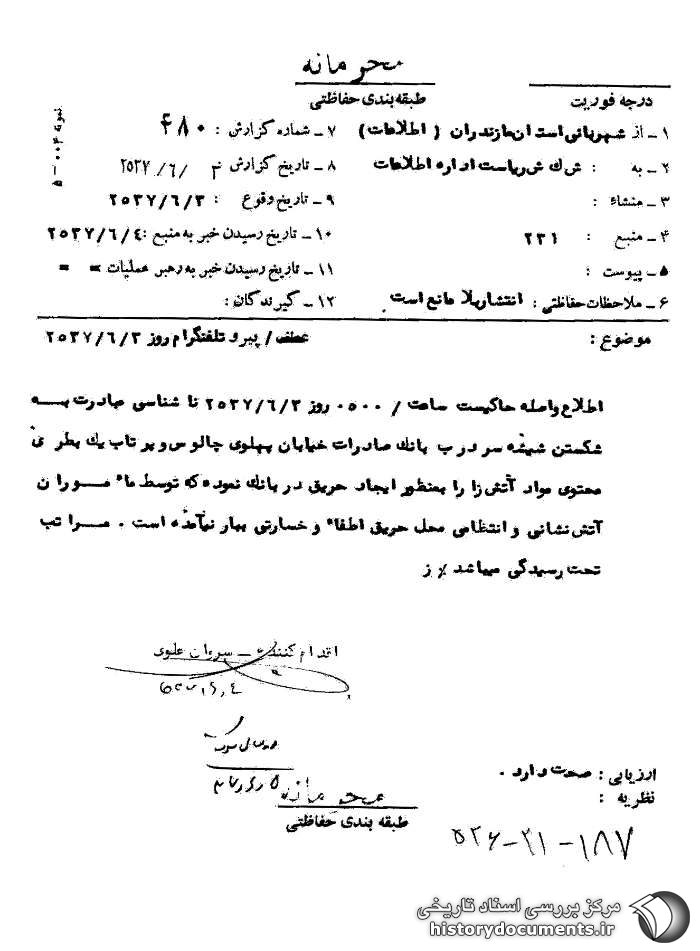 محرمانه
درجه فوریت
طبقه بندی حفاظتی
۱ ـ از شهربانی استان مازندران ( اطلاعات )
۷ ـ شماره گزارش : ۴۸۰
۲ ـ به : ش ک ش ریاست اداره اطلاعات
۸ ـ تاریخ گزارش : ۲۵۳۷/۶/
۳ ـ منشاء :
۹ ـ تاریخ وقوع : ۲۵۳۷/۶/۳
۴ ـ منبع : ۲۳۱
۱۰ ـ تاریخ رسیدن خبر به منبع : ۲۵۳۷/۶/۴
۵ ـ پیوست :
۱۱ ـ تاریخ رسیدن خبر به رهبر عملیات = =
۶ ـ ملاحظات حفاظتی : انتشار بلا مانع است
۱۲ ـ گیرندگان :
موضوع :
عطف / پیرو تلفنگرام روز ۲۵۳۷/۶/۳
اطلاع واصله حاکیست ساعت / ۰۵۰۰ روز ۲۵۳۷/۶/۳ نا شناسی مبادرت بــه
شکستن شیشه سر درب بانک صادرات خیابان پهلوی چالوس و پرتاب یک بطری
محتوی مواد آتش زا را بمنظور ایجاد حریق در بانک نموده که توسط ماء مــوران
آتش نشانی و انتظامی محل حریق اطفاء و خسارتی ببار نیآمده است . مــراتب
تحت رسیدگی میباشد ٪ ز
اقدام کننده ـ سروان علوی
ارزیابی : صحت دارد .
نظریه :
محرمانه
طبقه بندی حفاظتی
۵۲۶-۳۱-۱۸۷
مرکز بررسی اسناد تاریخی
historydocuments.ir